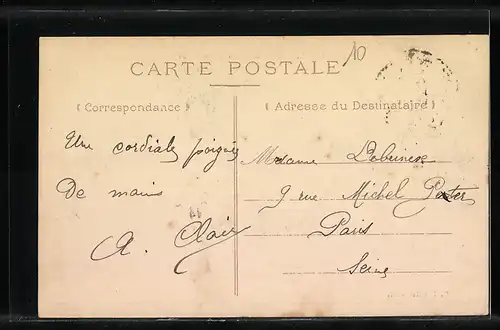 10
CARTE POSTALE
(Correspondance)
(Adresse du Destinataire)
Une cordiale poignée
De mains
A. Clair
Madame
9 rue Michel
Paris
Seine